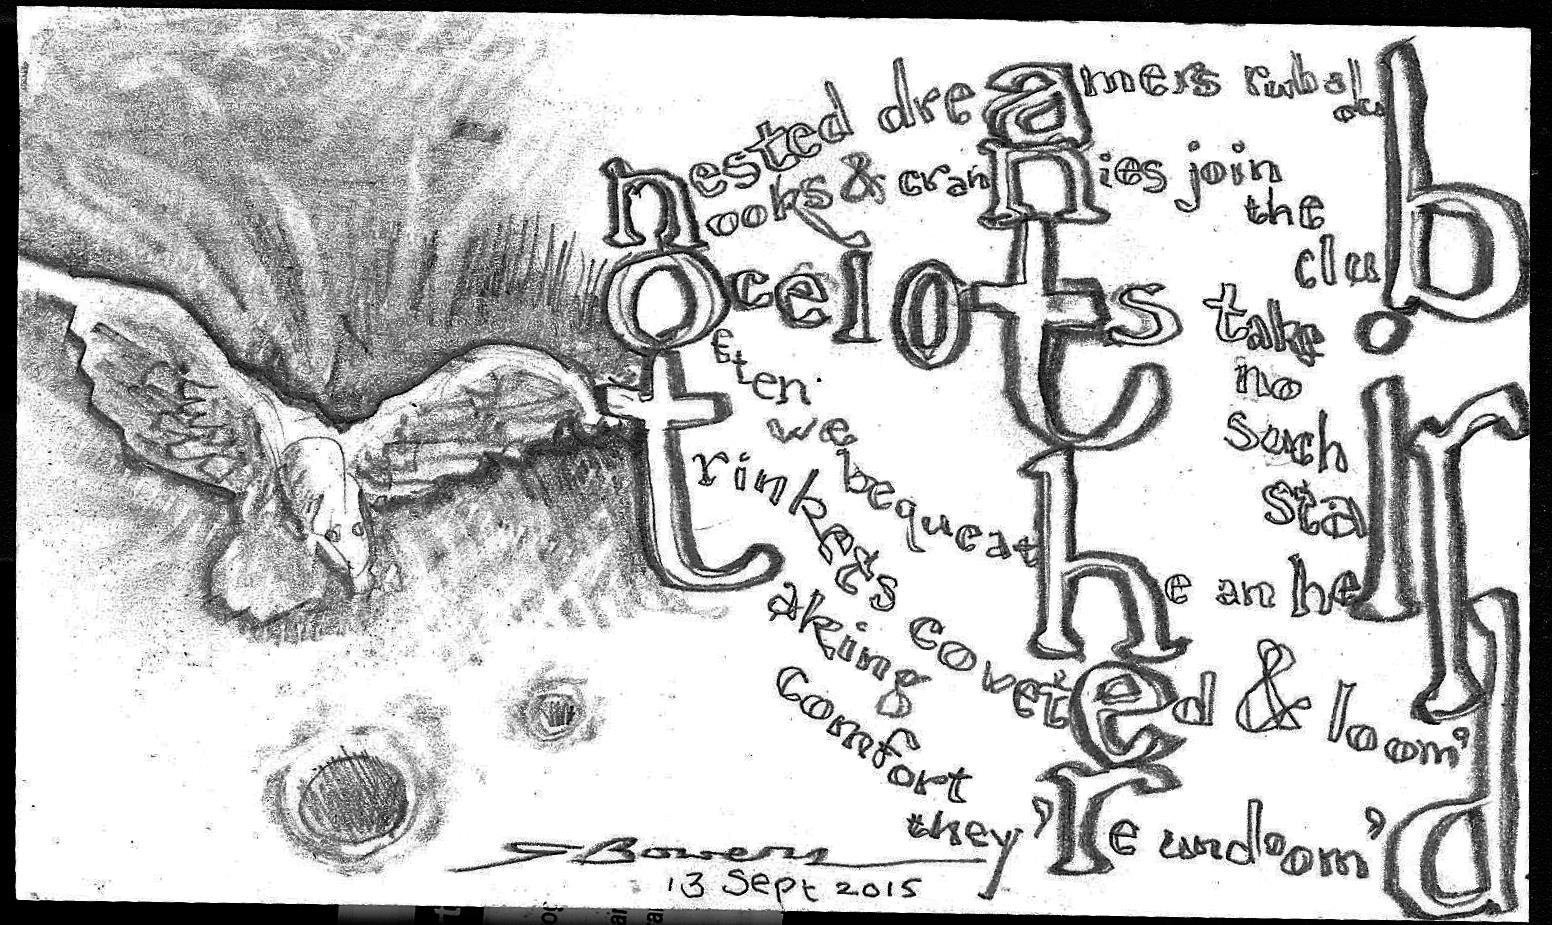 nested dreamers rub a dub
nooks & crannies join the club
ocelots take no such stair
often we bequeathe an heir
trinkets coveted & loom'd
taking comfort they're undoom'd
S Bowers
13 Sept 2015